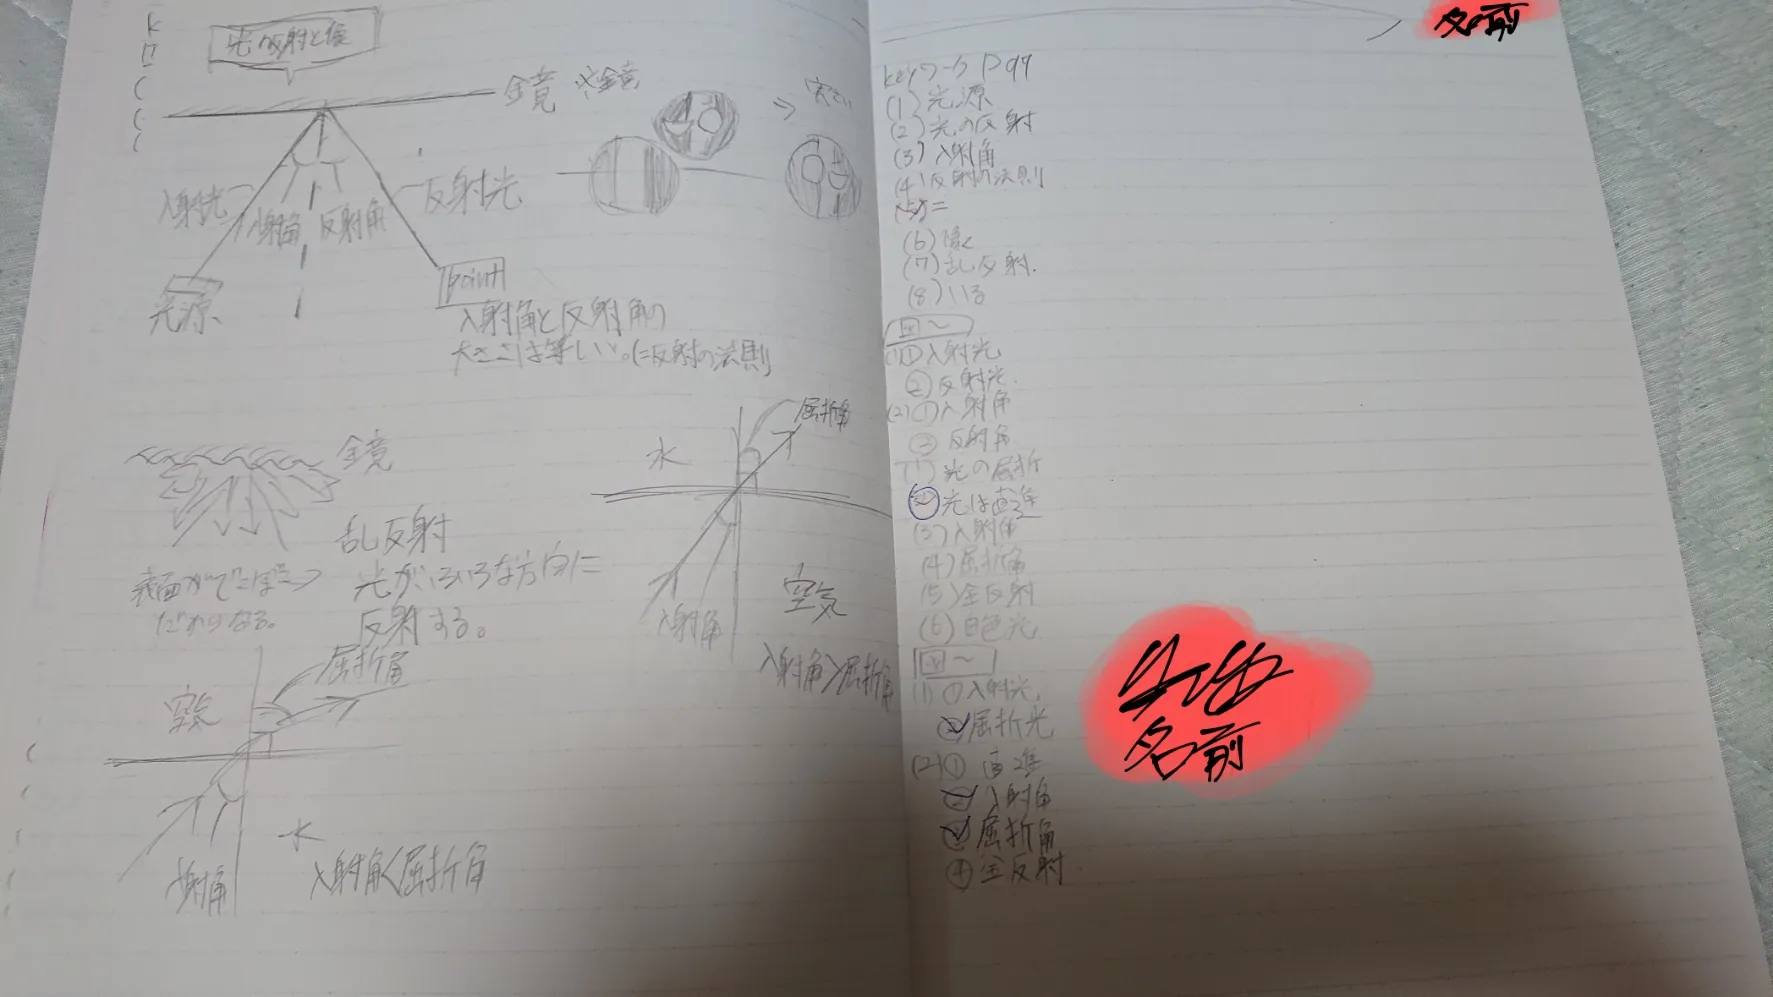 光の反射と像
鏡
鏡
入射光
入射角
反射角
反射光
光源
point
入射角と反射角の
大きさは等しい。(=反射の法則)
鏡
乱反射
表面がでこぼこ→
だからなる。
光がいろいろな方向に
反射する。
屈折角
水
空気
入射角
入射角>屈折角
屈折角
空気
水
入射角
入射角<屈折角
名前
keyワーク P97
(1)光源
(2)光の反射
(3)入射角
(4)反射の法則
(6)像
(7)乱反射.
(8)いる
図〜
(1)①入射光
②反射光.
(2)①入射角
②反射角
(1)光の屈折
光は直進
(3)入射角
(4)屈折角
(5)全反射
(6)白色光
図〜
(1)①入射光,
②屈折光
(2)①直進
②入射角
③屈折角
④全反射.
名前